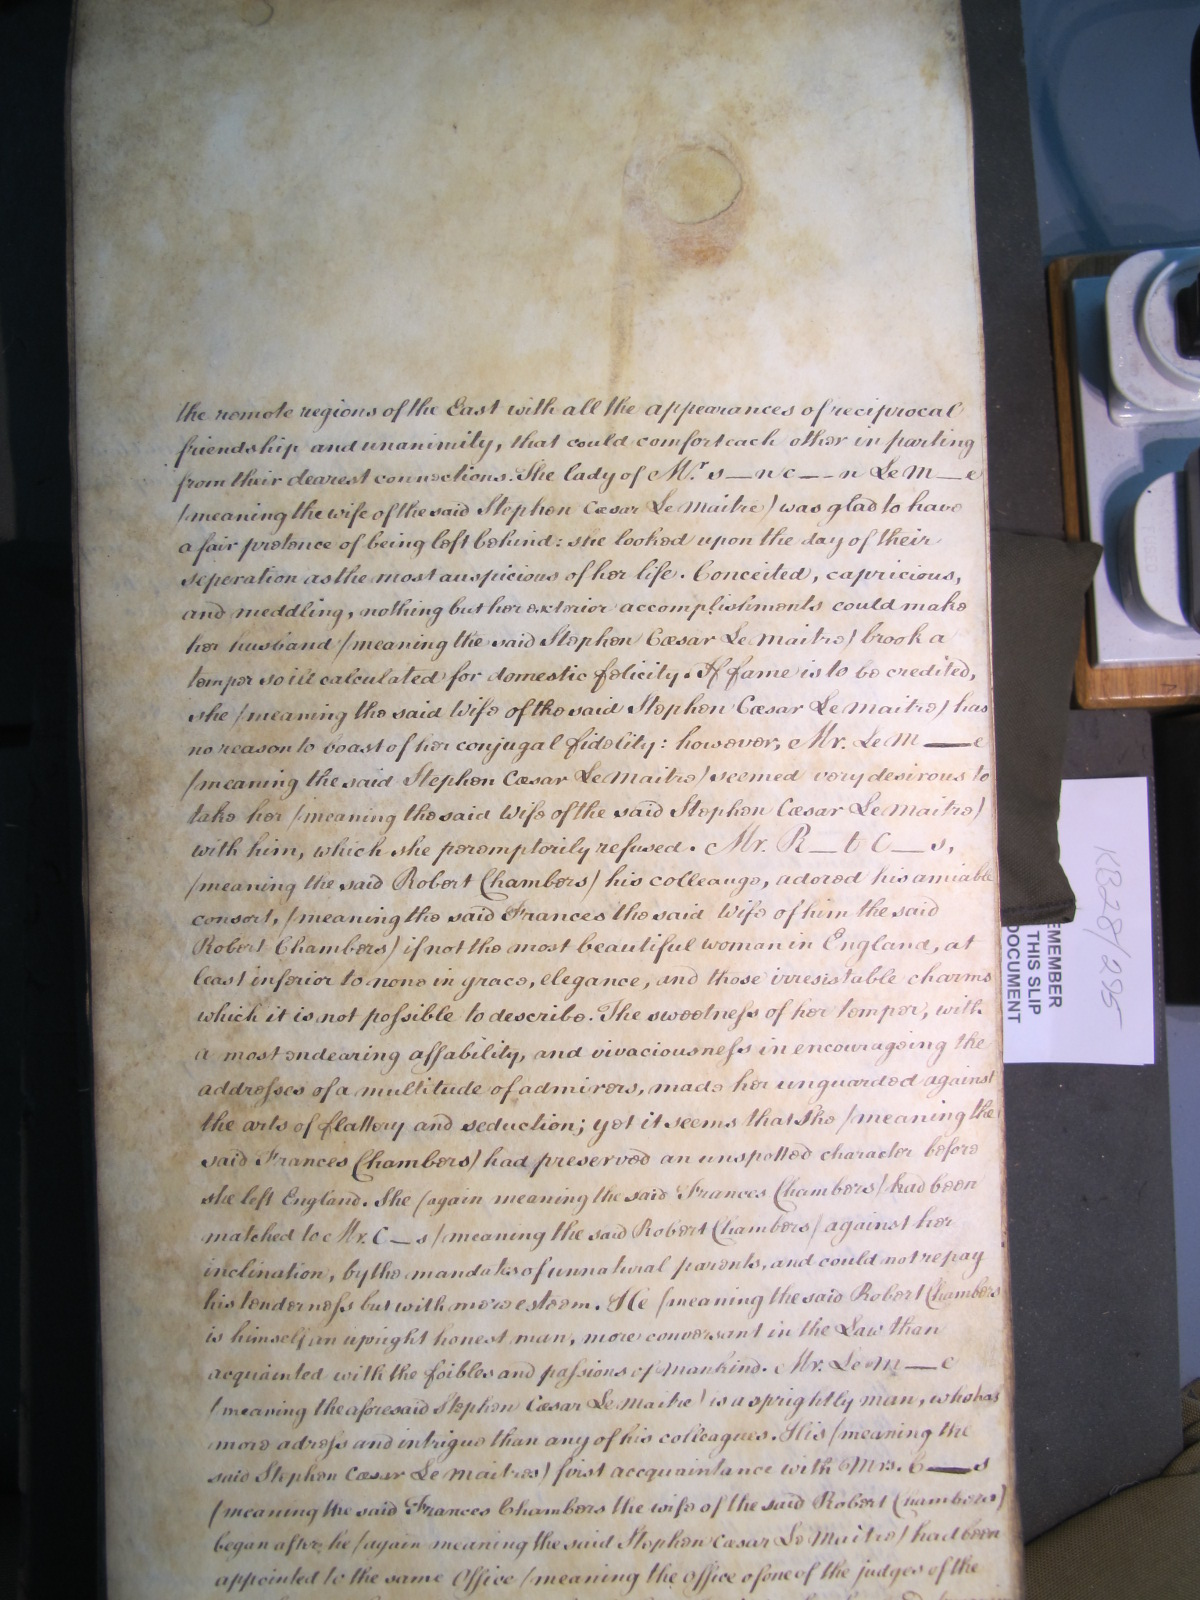 the remote regions of the East with all the appearances of reciprocal
friendship and unanimity, that could comfort each other in parting
from their dearest connections. The lady of Mr. S__n C__n Le M__e
/meaning the wife of the said Stephen Cæsar Le Maitre/ was glad to have
a fair pretence of being left behind: she looked upon the day of their
seperation as the most auspicious of her life. Conceited, capricious,
and meddling, nothing but her exterior accomplishments could make
her husband /meaning the said Stephen Cæsar Le Maitre/ brook a
temper so ill calculated for domestic felicity. If fame is to be credited,
she /meaning the said Wife of the said Stephen Cæsar Le Maitre/ has
no reason to boast of her conjugal fidelity: however, Mr. Le M__e
/meaning the said Stephen Cæsar Le Maitre/ seemed very desirous to
take her /meaning the said Wife of the said Stephen Cæsar Le Maitre/
with him, which she peremptorily refused. Mr. R__t C__s,
/meaning the said Robert Chambers/ his colleauge, adored his amiable
consort, /meaning the said Frances the said Wife of him the said
Robert Chambers/ if not the most beautiful woman in England, at
least inferior to none in grace, elegance, and those irresistable charms
which it is not possible to describe. The sweetness of her temper, with
a most endearing affability, and vivaciousness in encourageing the
addresses of a multitude of admirers, made her unguarded against
the arts of flattery and seduction; yet it seems that She /meaning the
said Frances Chambers/ had preserved an unspotted character before
she left England. She /again meaning the said Frances Chambers/ had been
matched to Mr. C__s /meaning the said Robert Chambers/ against her
inclination, by the mandates of unnatural parents, and could not repay
his tenderness but with mere esteem. He /meaning the said Robert Chambers
is himself an upright honest man, more conversant in the Law than
acquainted with the foibles and passions of mankind. Mr. Le M__e
/meaning the aforesaid Stephen Cæsar Le Maitre/ is a sprightly man, who has
more adress and intrigue than any of his colleagues. His /meaning the
said Stephen Cæsar Le Maitres/ first accquaintance with Mrs. C__s
/meaning the said Frances Chambers the wife of the said Robert Chambers/
began after he /again meaning the said Stephen Cæsar Le Maitre/ had been
appointed to the same Office /meaning the office of one of the judges of the
KB28/295
EMEMBER
THIS SLIP
DOCUMENT